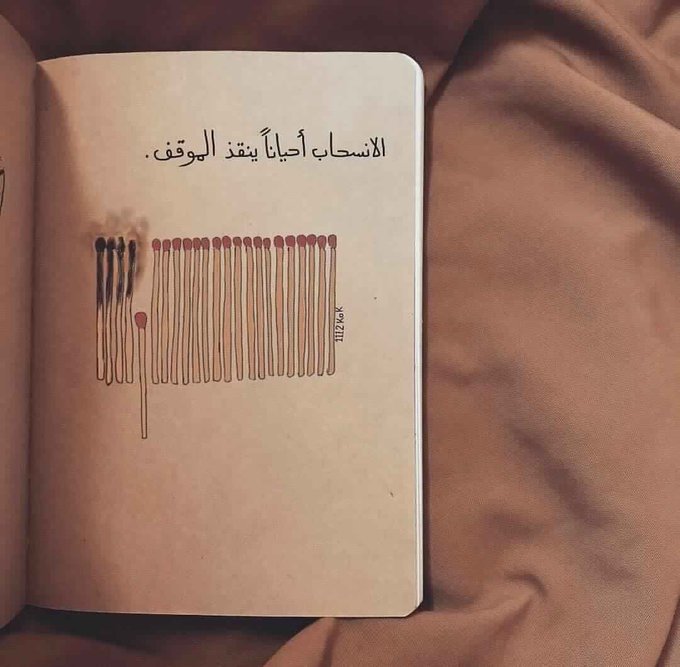 الانسحاب أحياناً ينقذ الموقف.
1112KOK